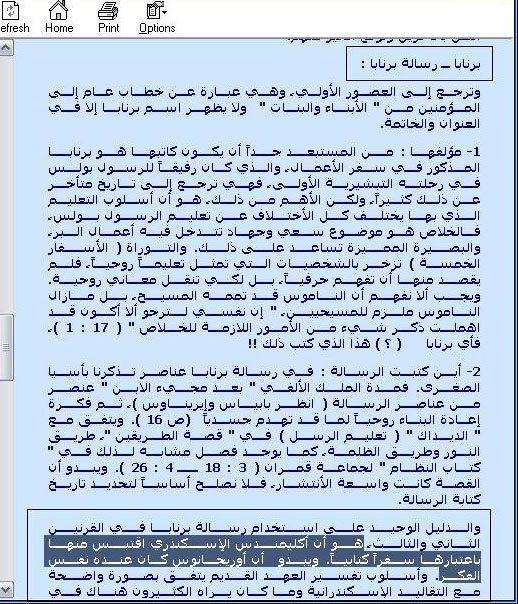 efresh Home Print Options
برنابا – رسالة برنابا :
وترجع إلى العصور الأولي، وهي عبارة عن خطاب عام إلى
المؤمنين من " الأبناء والبنات " ولا يظهر اسم برنابا إلا في
العنوان والخاتمة.
1- مؤلفها : من المستبعد جداً أن يكون كاتبها هو برنابا
المذكور في سفر الأعمال، والذي كان رفيقاً للرسول بولس
في رحلته التبشيرية الأولى، فهي ترجع إلى تاريخ متأخر
عن ذلك كثيراً، ولكن الأهم من ذلك، هو أن أسلوب التعليم
الذي بها يختلف كل الأختلاف عن تعليم الرسول بولس،
فالخلاص هو موضوع سعي وجهاد تتدخل فيه أعمال البر،
والبصيرة المميزة تساعد على ذلك. والتوراة ( الأسفار
الخمسة ) تزخر بالشخصيات التي تمثل تعليماً روحياً، فلم
يقصد منها أن تفهم حرفياً، بل لكي تنقل معاني روحية.
ويجب ألا نفهم أن الناموس قد تممه المسيح، بل مازال
الناموس ملزم للمسيحيين، " إن نفسي لترجو ألا أكون قد
اهملت ذكر شيء من الأمور اللازمة للخلاص " ( 17 : 1 )،
فأي برنابا ( ؟ ) هذا الذي كتب ذلك !!
2- أين كتبت الرسالة : في رسالة برنابا عناصر تذكرنا بأسيا
الصغرى. فمدة الملك الألفي " بعد مجيء الابن " عنصر
من عناصر الرسالة ( انظر بابياس وإيريناوس )، ثم فكرة
إعادة البناء روحياً لما قد تهدم جسدياً (ص 16 ). ويتفق مع
" الديداك " ( تعليم الرسل ) في " قصة الطريقين "، طريق
النور وطريق الظلمة، كما يوجد فصل مشابه لذلك في "
كتاب النظام " لجماعة قمران ( 3 : 18 – 4 : 26 ). ويبدو أن
القصة كانت واسعة الأنتشار، فلا نصلح أساساً لتحديد تاريخ
كتابة الرسالة.
والدليل الوحيد على استخدام رسالة برنابا في القرنين
الثاني والثالث، هو أن أكليمندس الإسكندري اقتبس منها
باعتبارها سفراً كتابياً. ويبدو أن أوريجانوس كان عنده نفس
الفكر. وأسلوب تفسير العهد القديم يتفق بصورة واضحة
مع التقاليد الإسكندرانية وما كان يراه الكثيرون هناك في